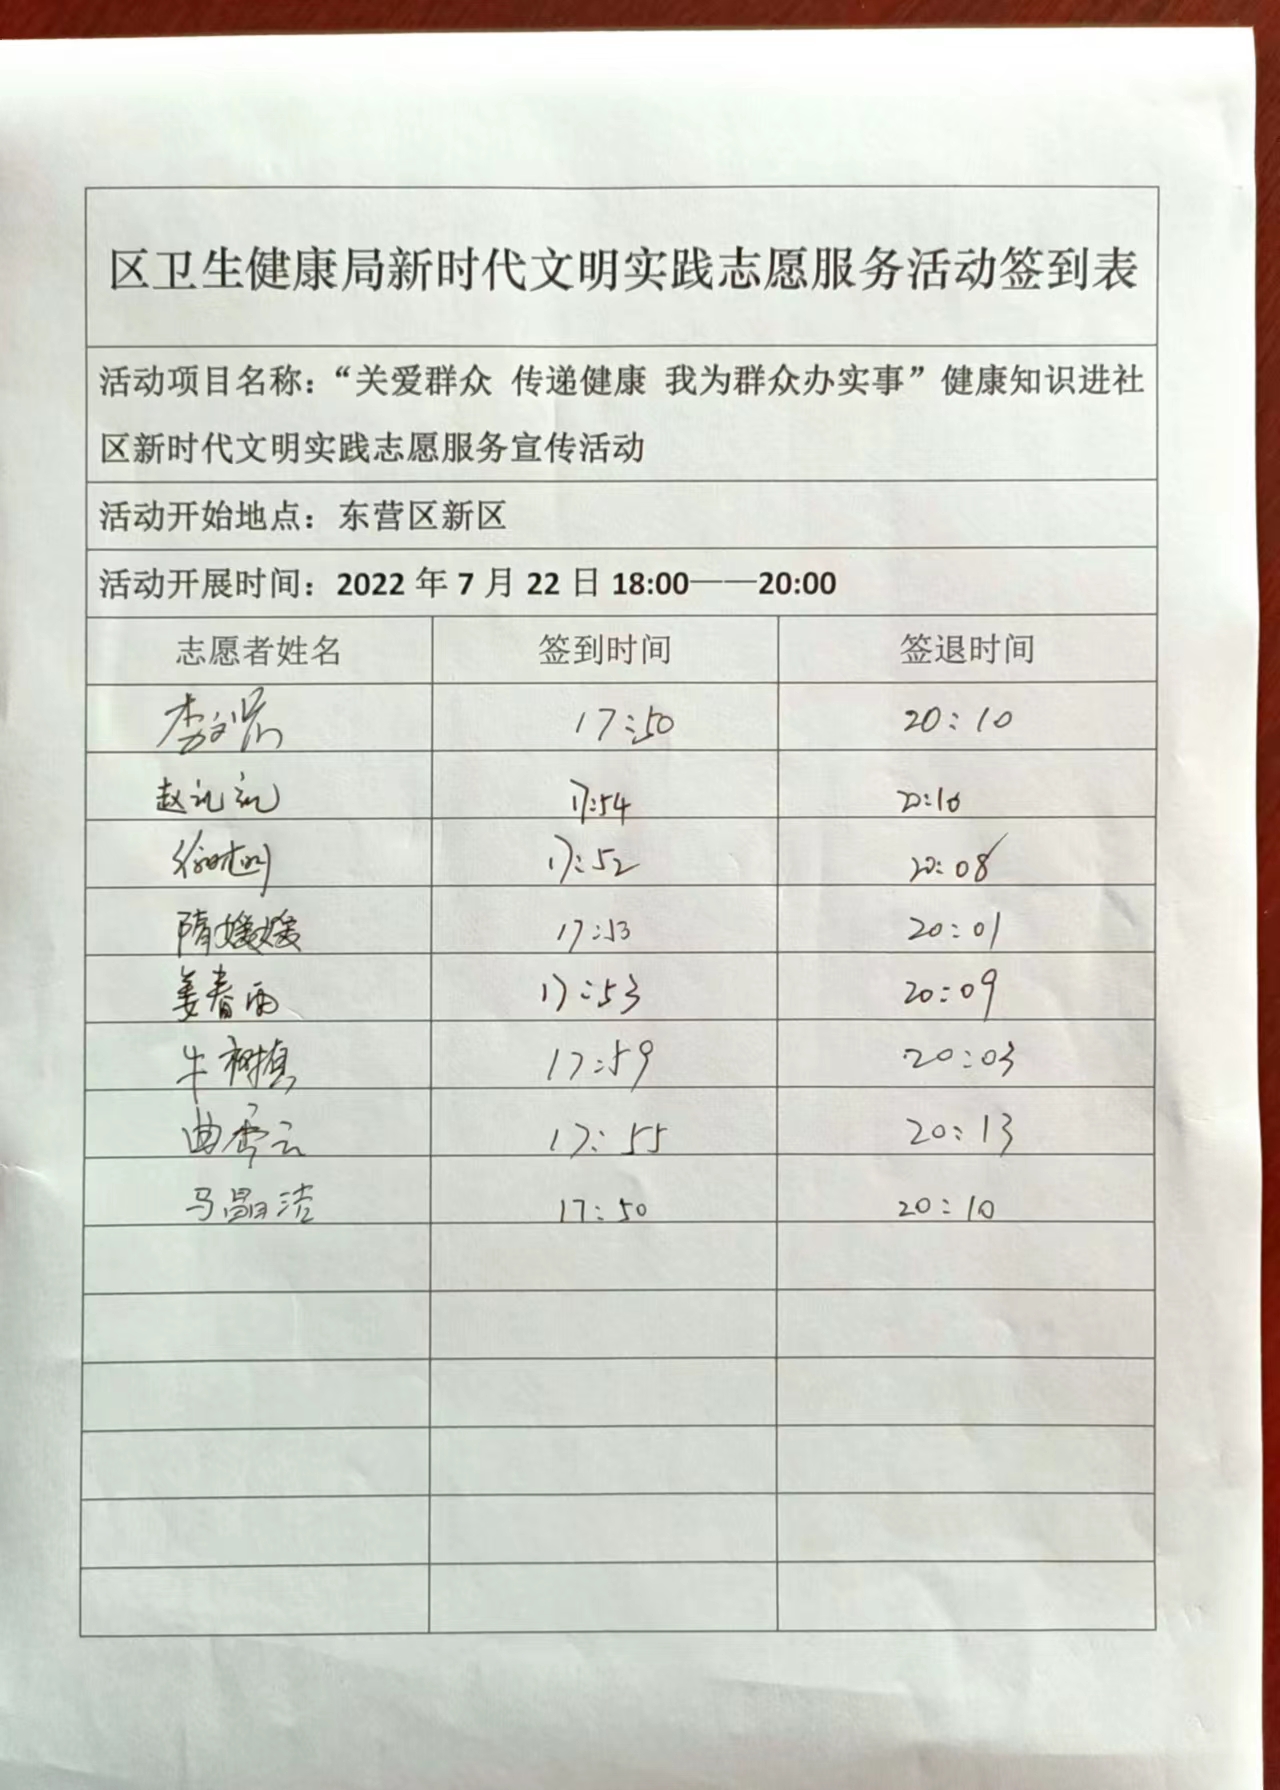 区卫生健康局新时代文明实践志愿服务活动签到表
活动项目名称：“关爱群众 传递健康 我为群众办实事”健康知识进社
区新时代文明实践志愿服务宣传活动
活动开始地点：东营区新区
活动开展时间：2022 年 7 月 22 日 18:00——20:00
志愿者姓名 签到时间 签退时间
17:50 20:10
17:54 20:10
17:52 20:08
隋媛媛 17:53 20:01
姜春雨 17:53 20:09
牛树真 17:59 20:03
曲秀云 17:55 20:13
马晶洁 17:50 20:10